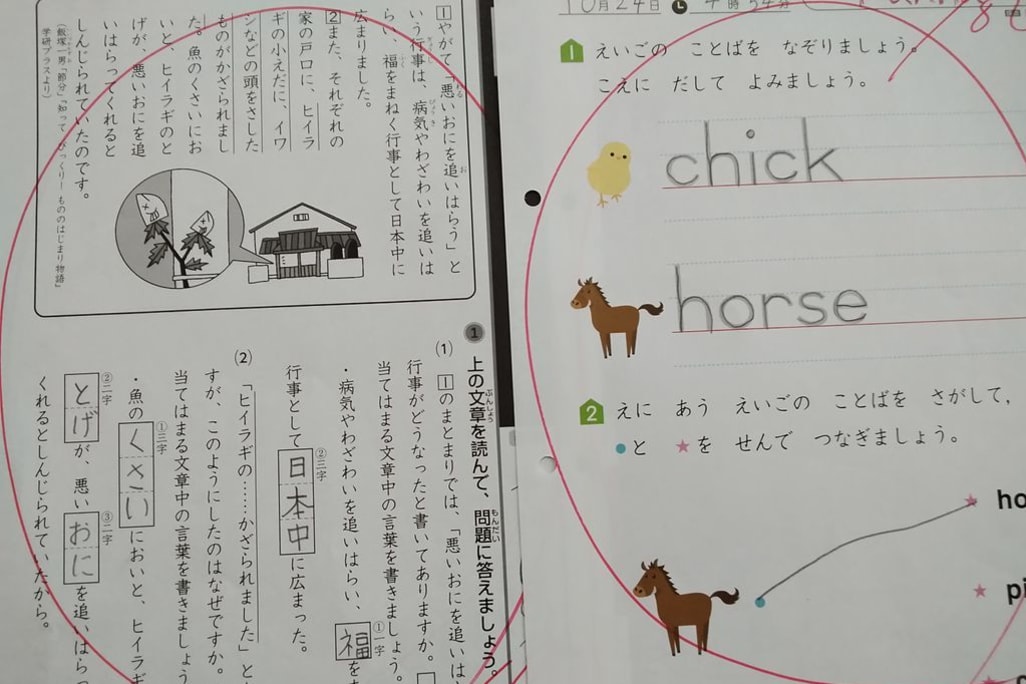 1やがて「悪いおにを追いはらう」と
いう行事は、病気やわざわいを追いは
らい、福をまねく行事として日本中に
広まりました。
2また、それぞれの
家の戸口に、ヒイラ
ギの小えだに、イワ
シなどの頭をさした
ものがかざられまし
た。魚のくさいにお
いと、ヒイラギのと
げが、悪いおにを追
いはらってくれると
しんじられていたのです。
(飯塚一男「節分」『知ってびっくり!もののはじまり物語』
学研プラスより)
1 上の文章を読んで、問題に答えましょう。
(1) 1のまとまりでは、「悪いおにを追いは
行事がどうなったと書いてありますか。
当てはまる文章中の言葉を書きましょう。
・病気やわざわいを追いはらい、福を
①一字
行事として日本中に広まった。
②三字
(2) 「ヒイラギの……かざられました」と
すが、このようにしたのはなぜですか。
当てはまる文章中の言葉を書きましょう
・魚のくさいにおいと、ヒイラギ
①三字
とげが、悪いおにを追いはらっ
②二字
③二字
くれるとしんじられていたから。
10月24日 4時54分
1 えいごの ことばを なぞりましょう。
こえに だして よみましょう。
chick
horse
2 えに あう えいごの ことばを さがして、
●と ★を せんで つなぎましょう。
ho
pi